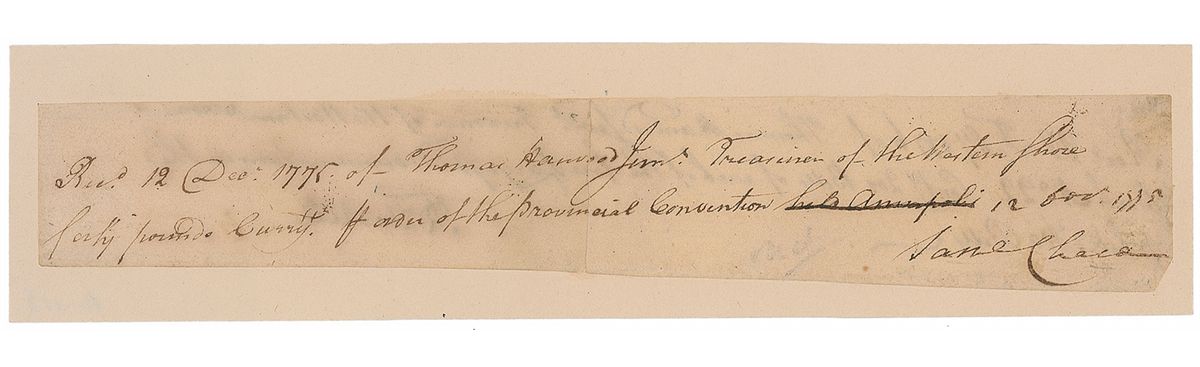 Rec.d 12 Dec.r 1775. of Thomas Harwood Jun.r Treasurer of the Western Shore
forty pounds Curr.y. ⅌ order of the Provincial Convention held Annapolis 12 1775
Sam.l Chase